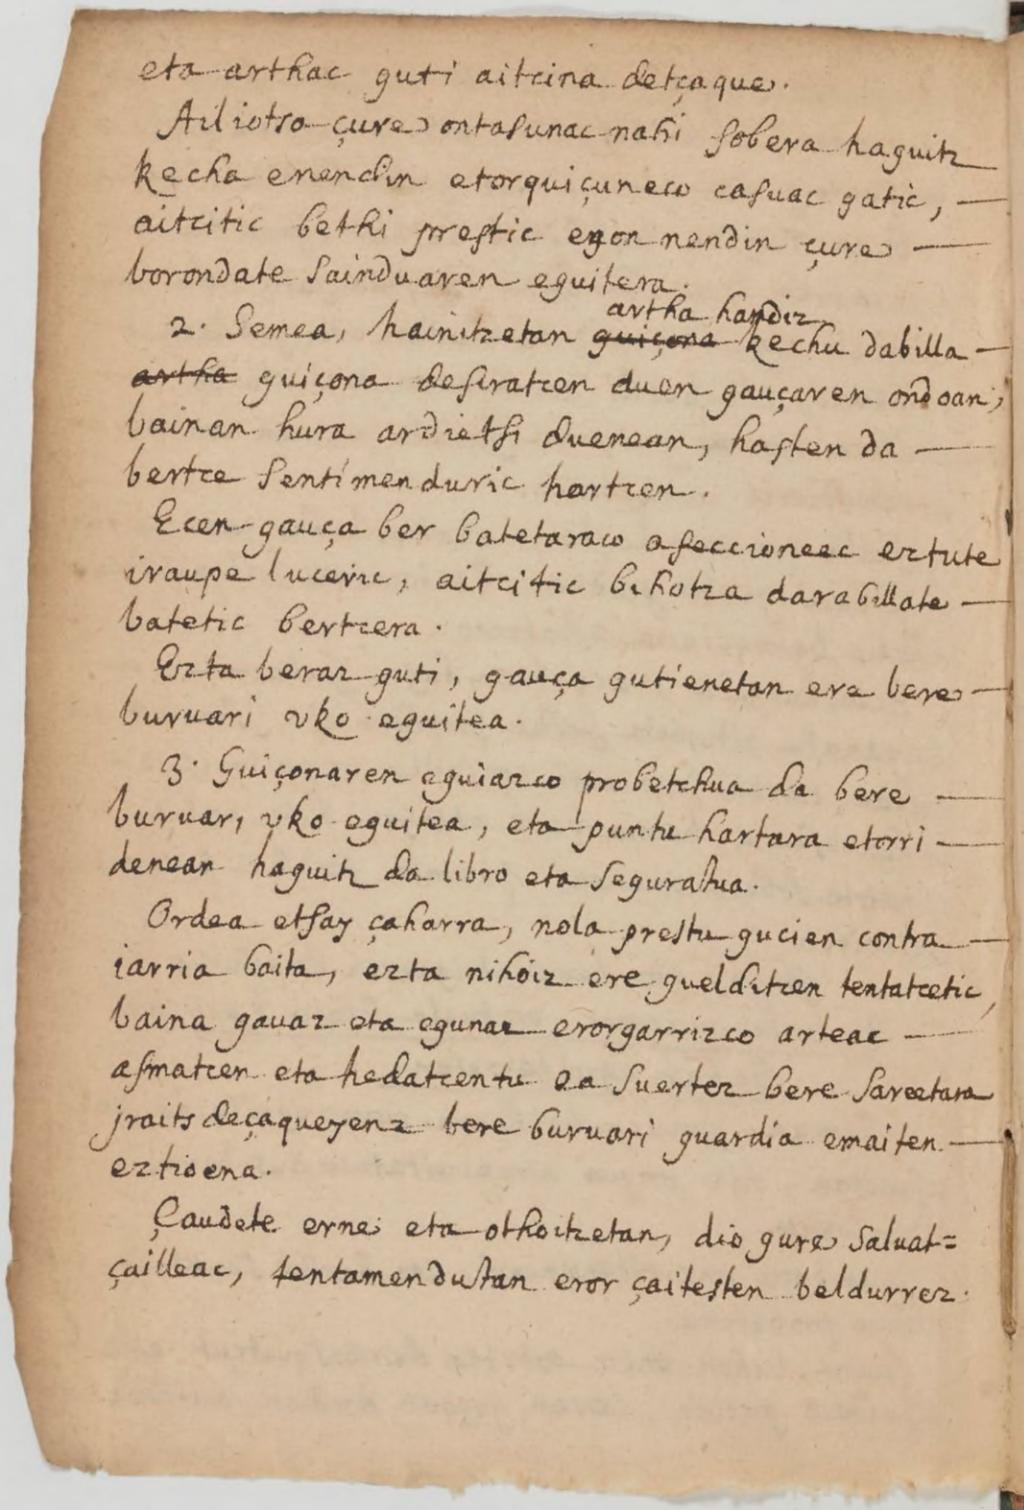 eta arthac guti aitcina detçaque.
Ailiotso çure ontasunac nahi sobera haguitz
kecha enendin etorquiçuneco casuac gatic, —
aitcitic bethi prestic egon nendin çure —
borondate sainduaren eguitera.
artha handiz
2. Semea, hainitzetan guiçona kechu dabilla —
artha guiçona desiratcen duen gauçaren ondoan;
bainan hura ardietsi duenean, hasten da —
bertce sentimenduric hartcen.
Ecen gauça ber batetaraco afeccioneec eztute
iraupe luceric, aitcitic bihotza darabillate —
batetic bertcera.
Ezta beraz guti, gauça gutienetan ere bere —
buruari vko eguitea.
3. Guiçonaren eguiazco probetchua da bere —
buruari vko eguitea, eta puntu hartara etorri —
denean haguitz da libro eta seguratua.
Ordea etsay çaharra, nola prestu gucien contra —
iarria baita, ezta nihoiz ere guelditzen tentatcetic,
baina gauaz eta egunaz erorgarrizco arteac —
asmatcen eta hedatcentu ea suertez bere sareetara
jraits deçaqueyenz bere buruari guardia emaiten —
eztioena.
Çaudete erne eta othoitzetan, dio gure saluat=
çailleac, tentamendutan eror çaitesten beldurrez.